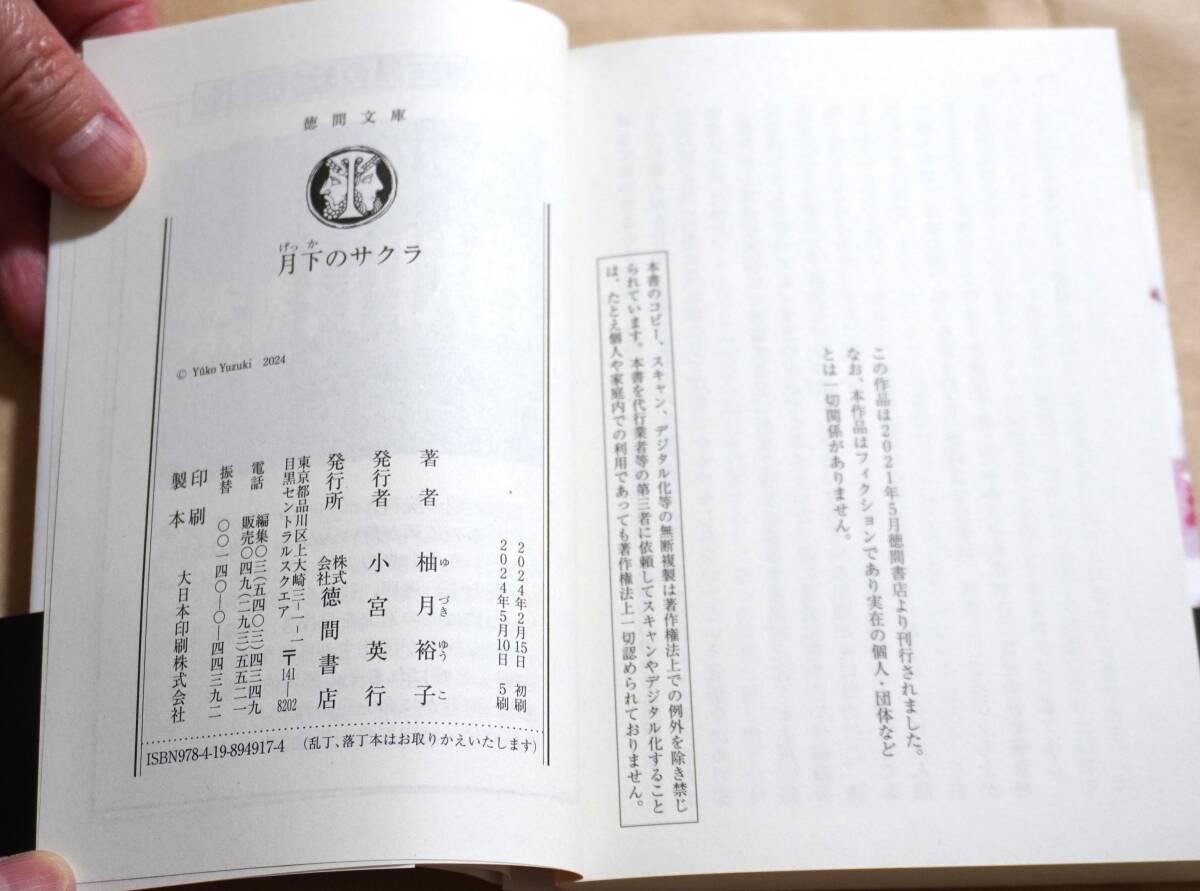 この作品は2021年5月徳間書店より刊行されました。
なお、本作品はフィクションであり実在の個人・団体など
とは一切関係がありません。
本書のコピー、スキャン、デジタル化等の無断複製は著作権法上での例外を除き禁じ
られています。本書を代行業者等の第三者に依頼してスキャンやデジタル化すること
は、たとえ個人や家庭内での利用であっても著作権法上一切認められておりません。
徳間文庫
げっか
月下のサクラ
© Yûko Yuzuki 2024
2024年2月15日 初刷
2024年5月10日 5刷
著者 柚月裕子
ゆづきゆうこ
発行者 小宮英行
発行所 株式会社徳間書店
東京都品川区上大崎三-一-一
目黒セントラルスクエア 〒141-8202
電話 編集〇三(五四〇三)四三四九
販売〇四九(二九三)五五二一
振替 〇〇一四〇-〇-四四三九二
印刷
製本 大日本印刷株式会社
ISBN978-4-19-894917-4 (乱丁、落丁本はお取りかえいたします)